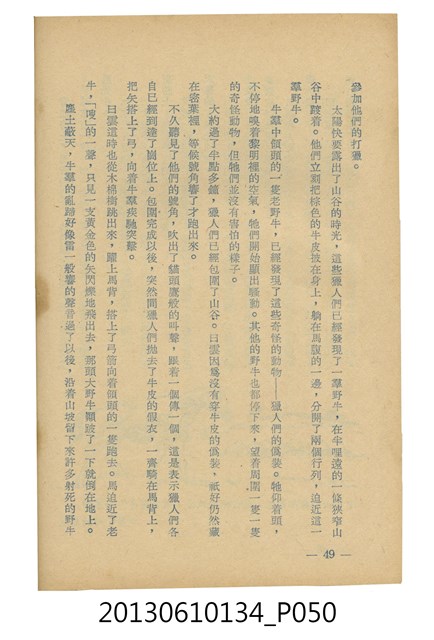 參加他們的打獵。
太陽快要露出了山谷的時光，這些獵人們已經發現了一羣野牛，在半哩遠的一條狹窄山
谷中踱着。他們立刻把棕色的牛皮披在身上，騎在馬腹的一邊，分開了兩個行列，迫近這一
羣野牛。
牛羣中領頭的一隻老野牛，已經發現了這些奇怪的動物——獵人們的偽裝。牠仰着頭，
不停地嗅着黎明裡的空氣，牠們開始顯出騷動。其他的野牛也都停下來，望着周圍一隻一隻
的奇怪動物，但牠們並沒有害怕的樣子。
大約過了半點多鐘，獵人們已經包圍了山谷。白雲因爲沒有穿牛皮的偽裝，祇好仍然藏
在密葉裡，等候號角響了才跑出來。
不久聽見了他們的號角，吹出了貓頭鷹般的叫聲，跟着一個傳一個，這是表示獵人們各
自已經到達了崗位上。包圍完成以後，突然間獵人們拋去了牛皮的假衣，一齊騎在馬背上，
把矢搭上了弓，向着牛羣疾馳突擊。
白雲這時也從木棉樹跳出來，躍上馬背，搭上了弓箭向着領頭的一隻跑去。馬迫近了老
牛，「嗖」的一聲，只見一支黃金色的矢閃爍地飛出去，那頭大野牛顛跛了一下就倒在地上。
塵土蔽天，牛羣的亂蹄好像雷一般響的聲音過了以後，沿着山坡留下來許多射死的野牛
— 49 —
20130610134_P050